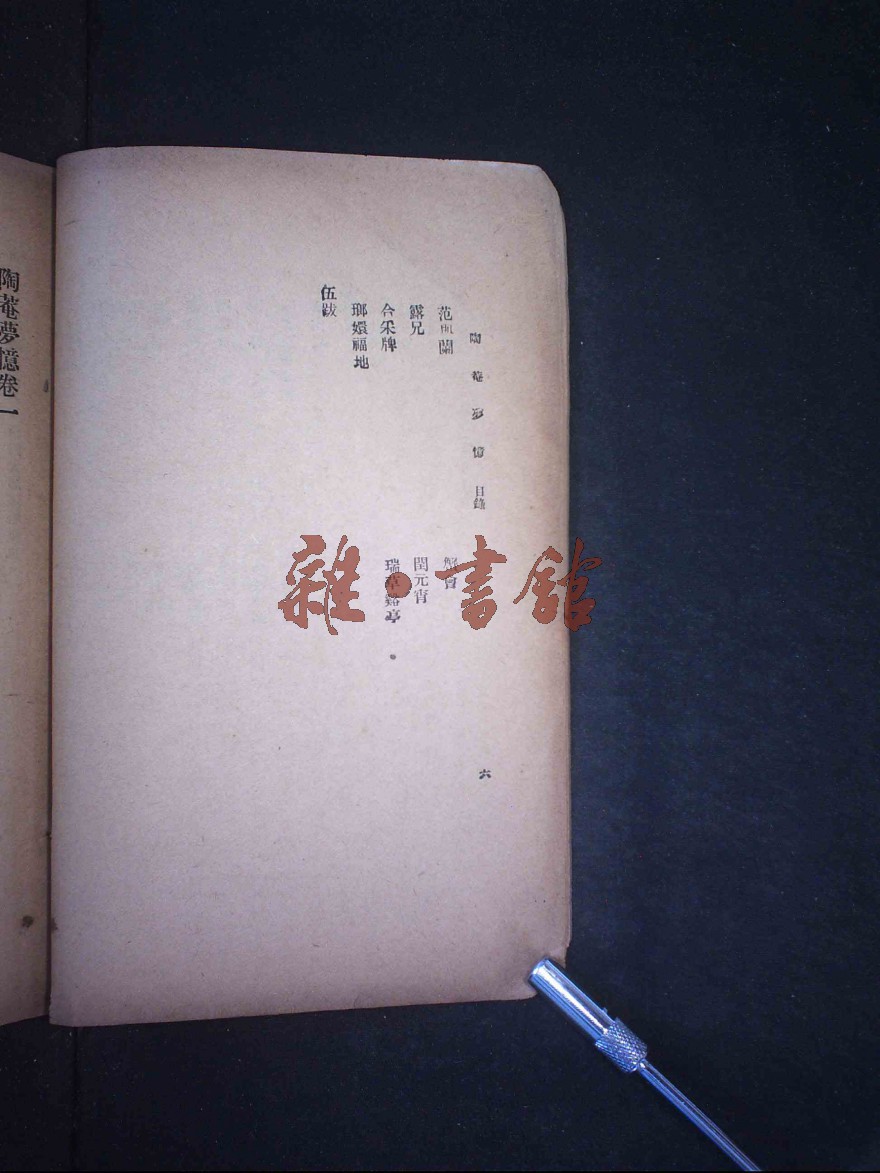 陶菴夢憶 目錄 六
范與蘭 蟹會
露兄 閏元宵
合采牌 瑞草谿亭
瑯嬛福地
伍跋
陶菴夢憶卷一
雜·書館